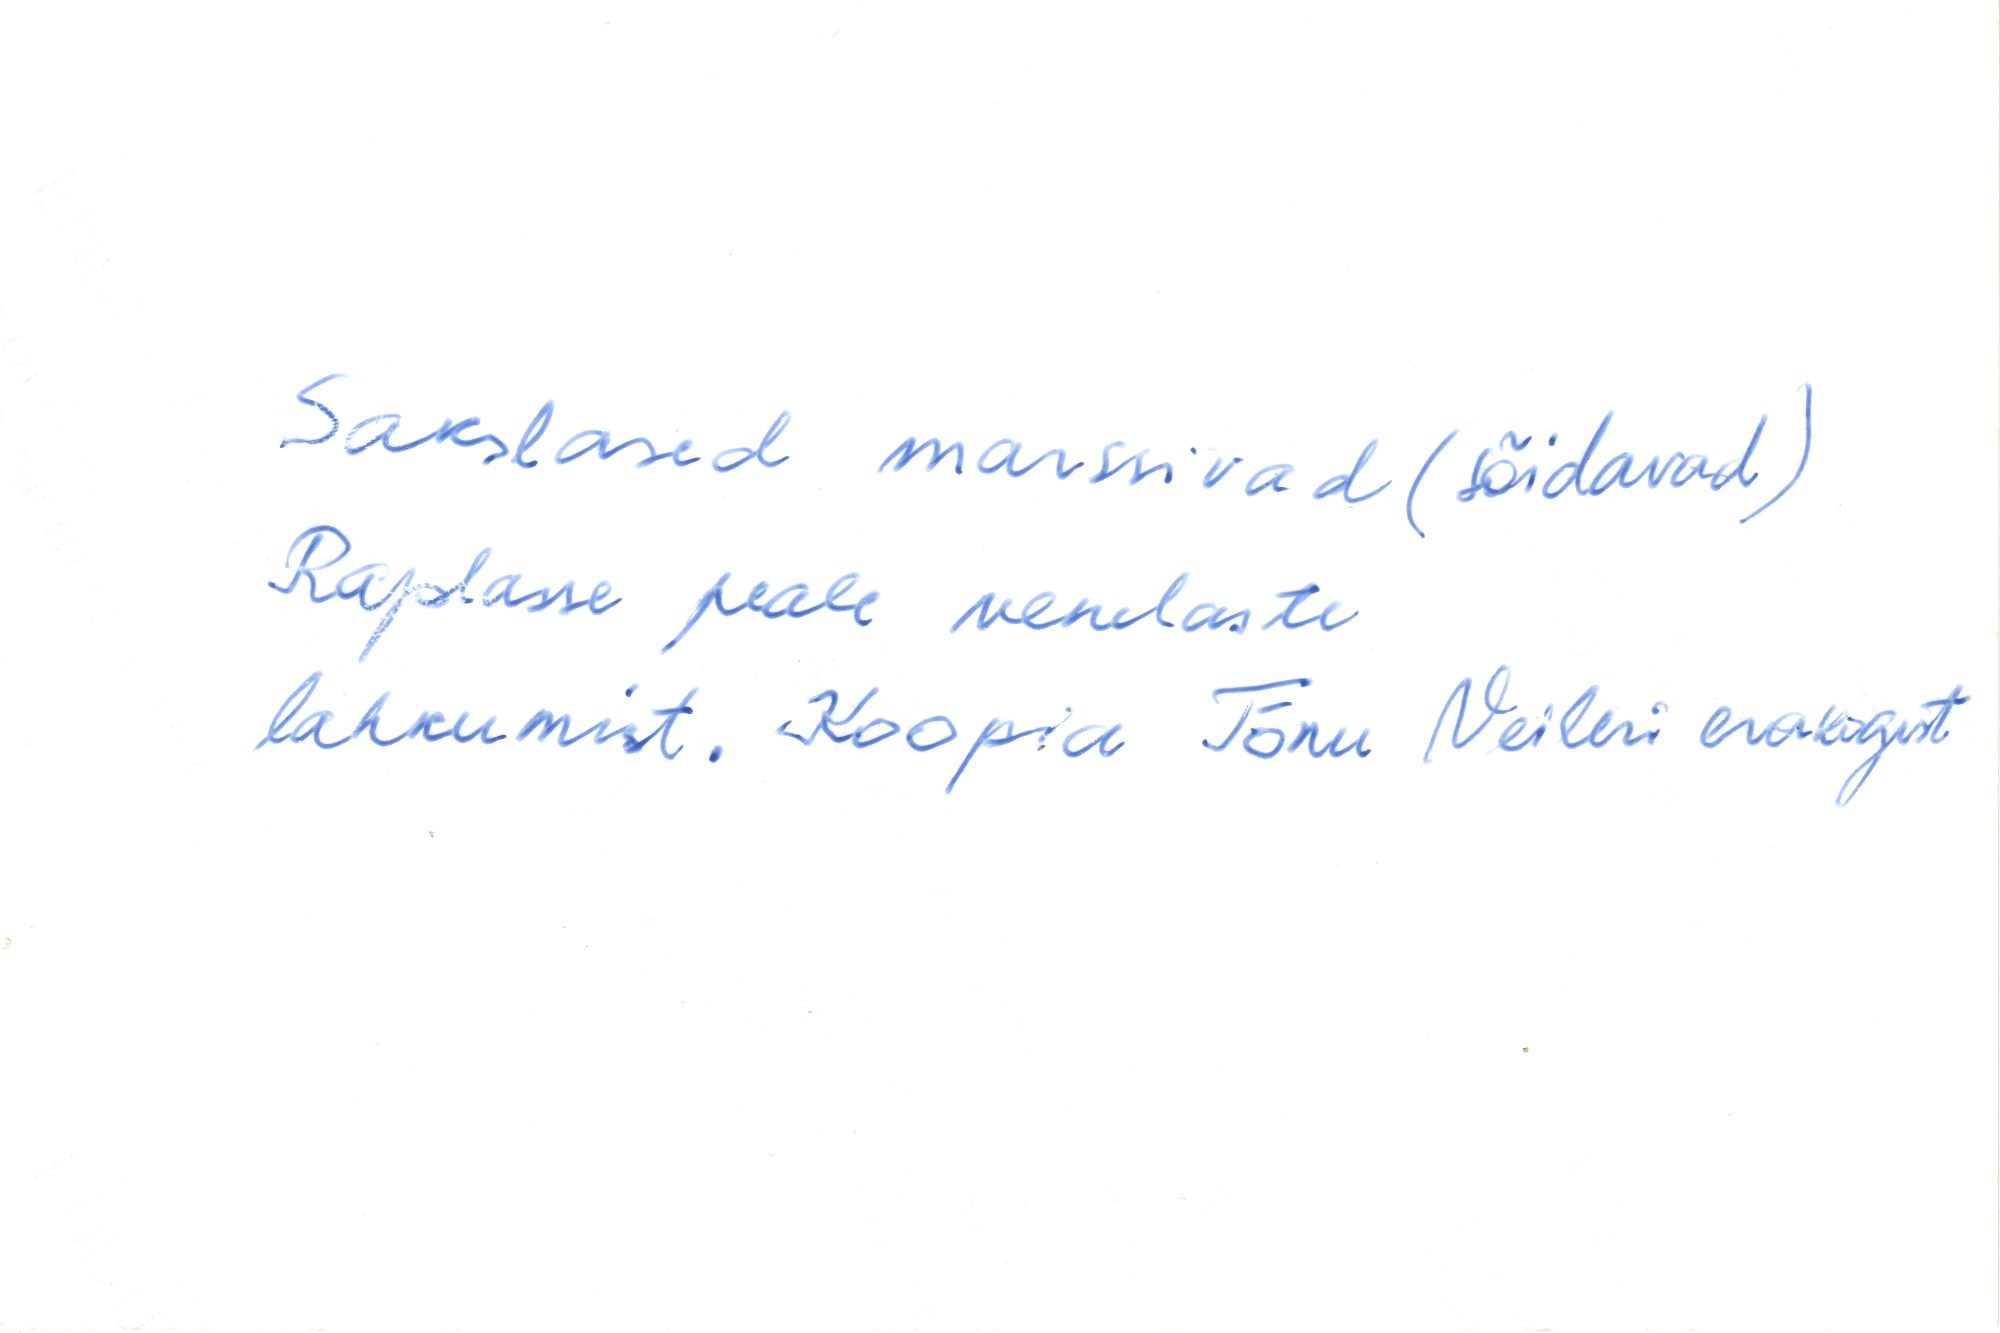 Sakslased marssivad (sõidavad)
Raplasse peale venelaste
lahkumist. Koopia Tõnu Veileri erakogust